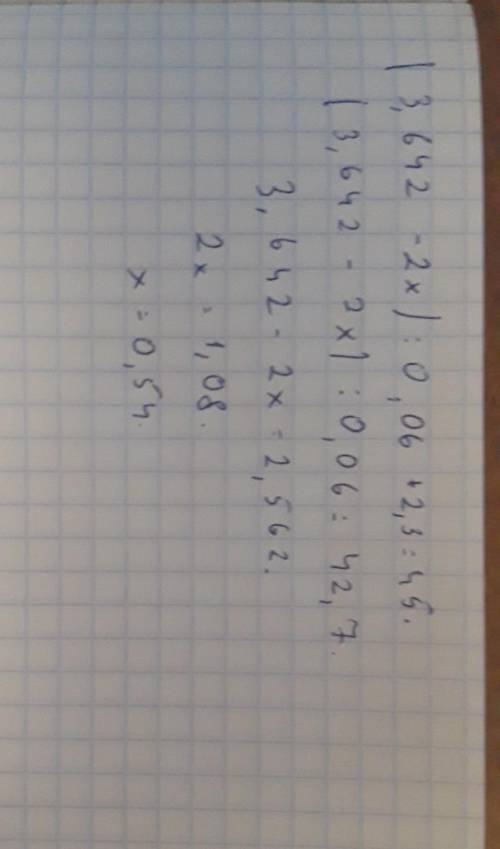 (3,642 - 2x) : 0,06 + 2,3 = 45.
(3,642 - 2x) : 0,06 = 42,7.
3,642 - 2x = 2,562.
2x = 1,08.
x = 0,54.